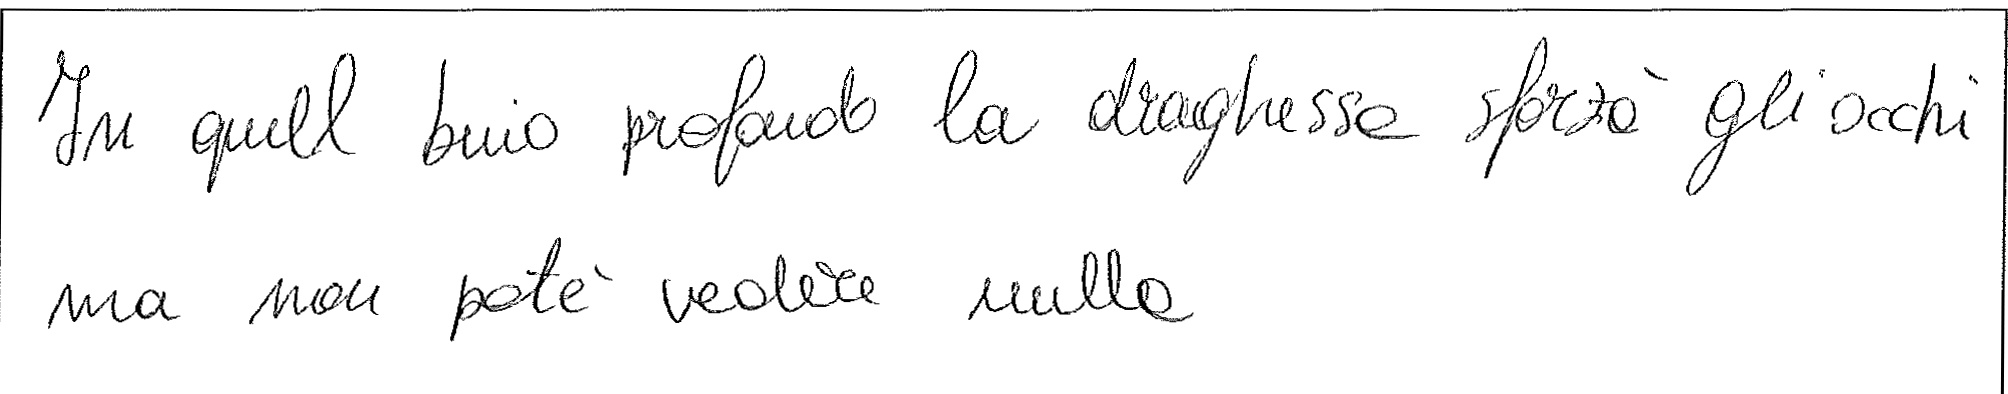 In quell buio profondo la draghessa sforzò gli occhi
ma non potè vedere nulla